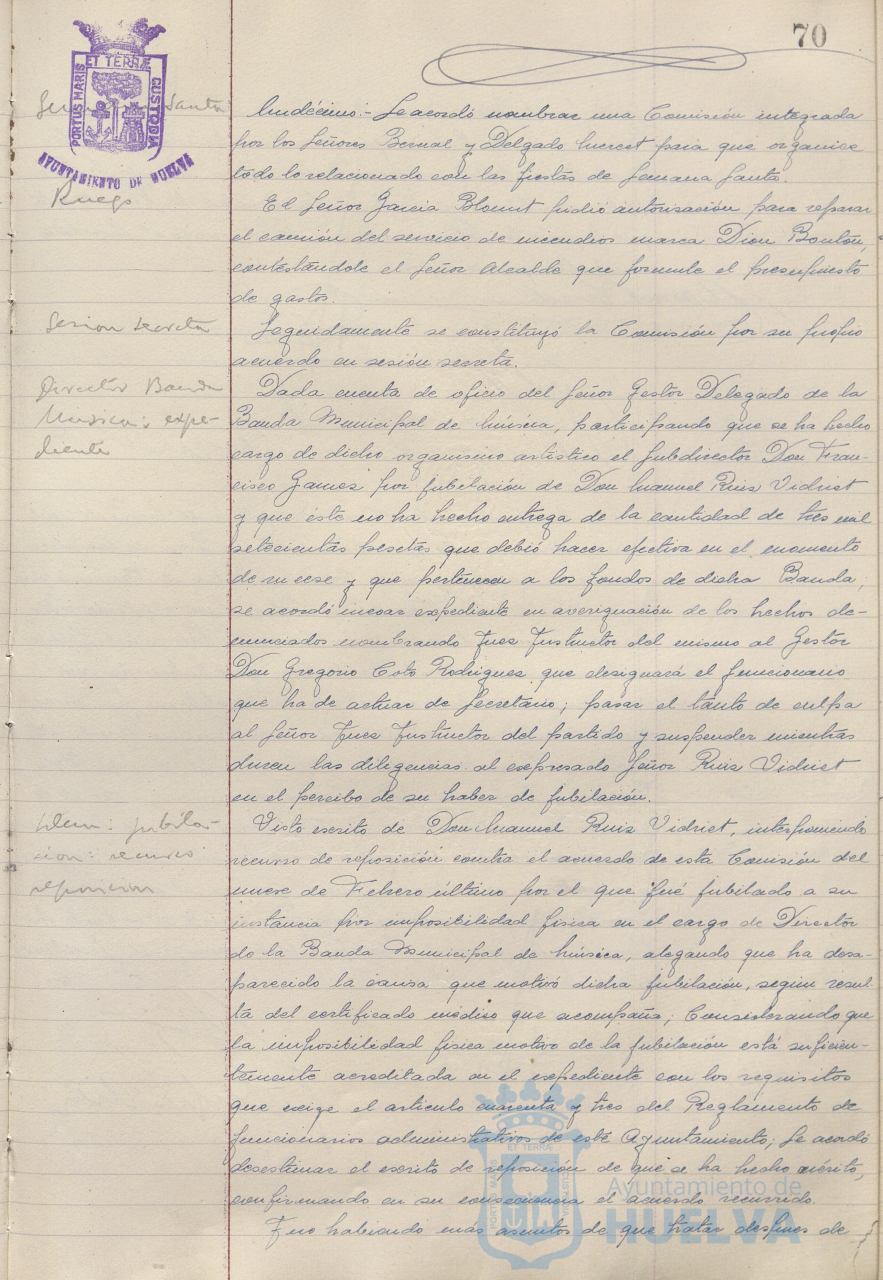 70
PORTUS MARIS ET TERRÆ CUSTODIA
AYUNTAMIENTO DE HUELVA
Santa
Undécimo:- Se acordó nombrar una Comisión integrada
por los Señores Bernal y Delgado Lucret para que organice
todo lo relacionado con las fiestas de Semana Santa.
Ruego
El Señor Garcia Blount pidió autorización para reparar
el camión del servicio de incendios marca Dion Bonton,
contestándole el Señor Alcalde que formule el presupuesto
de gastos.
Sesion secreta
Seguidamente se constituyó la Comisión por su propio
acuerdo en sesión secreta.
Director Banda
Musica: expe-
diente
Dada cuenta de oficio del Señor Gestor Delegado de la
Banda Municipal de Música, participando que se ha hecho
cargo de dicho organismo artístico el Subdirector Don Fran-
cisco Gamez por jubilación de Don Manuel Ruiz Vidriet
y que éste no ha hecho entrega de la cantidad de tres mil
setecientas pesetas que debió hacer efectiva en el momento
de su cese y que pertenecen a los fondos de dicha Banda,
se acordó incoar expediente en averiguación de los hechos de-
nunciados nombrando Juez Instructor del mismo al Gestor
Don Gregorio Coto Rodriguez que designará el funcionario
que ha de actuar de Secretario; pasar el tanto de culpa
al Señor Juez Instructor del partido y suspender mientras
duren las diligencias al expresado Señor Ruiz Vidriet
en el percibo de su haber de jubilación.
Idem: jubila-
cion: recurso
reposicion
Visto escrito de Don Manuel Ruiz Vidriet, interponiendo
recurso de reposición contra el acuerdo de esta Comisión del
nueve de Febrero último por el que fué jubilado a su
instancia por imposibilidad física en el cargo de Director
de la Banda Municipal de Música, alegando que ha desa-
parecido la causa que motivó dicha jubilación, según resul-
ta del certificado médico que acompaña; Considerando que
la imposibilidad física motivo de la jubilación está suficien-
temente acreditada en el expediente con los requisitos
que exige el artículo cuarenta y tres del Reglamento de
funcionarios administrativos de este Ayuntamiento; Se acordó
desestimar el escrito de reposición de que se ha hecho mérito,
confirmando en su consecuencia el acuerdo recurrido.
Y no habiendo más asuntos de que tratar después de
PORTUS MARIS ET TERRÆ CUSTODIA
Ayuntamiento de
HUELVA